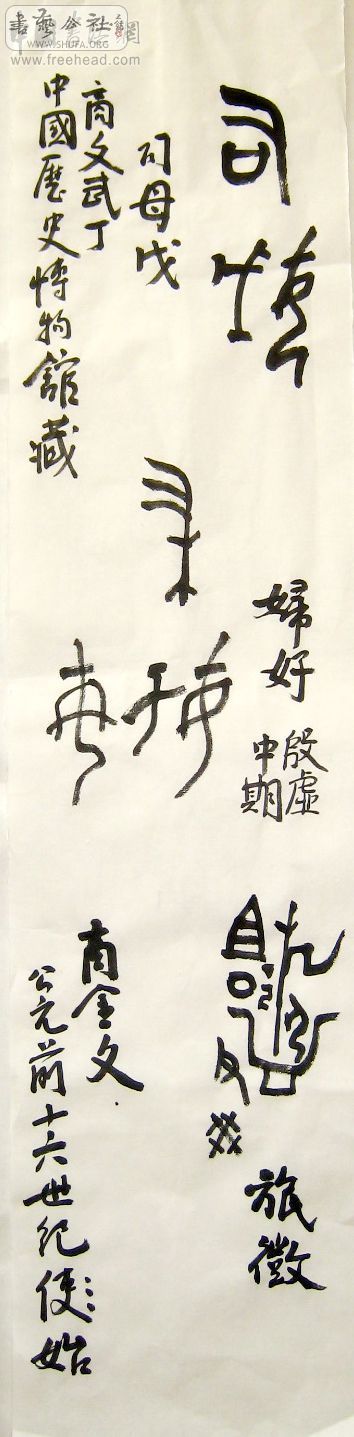 書藝公社
WWW.SHUFA.ORG
www.freehead.com
司母戊
商文武丁
中國歷史博物館藏
婦好
殷虛
中期
旅徵
商金文
公元前十六世紀使始